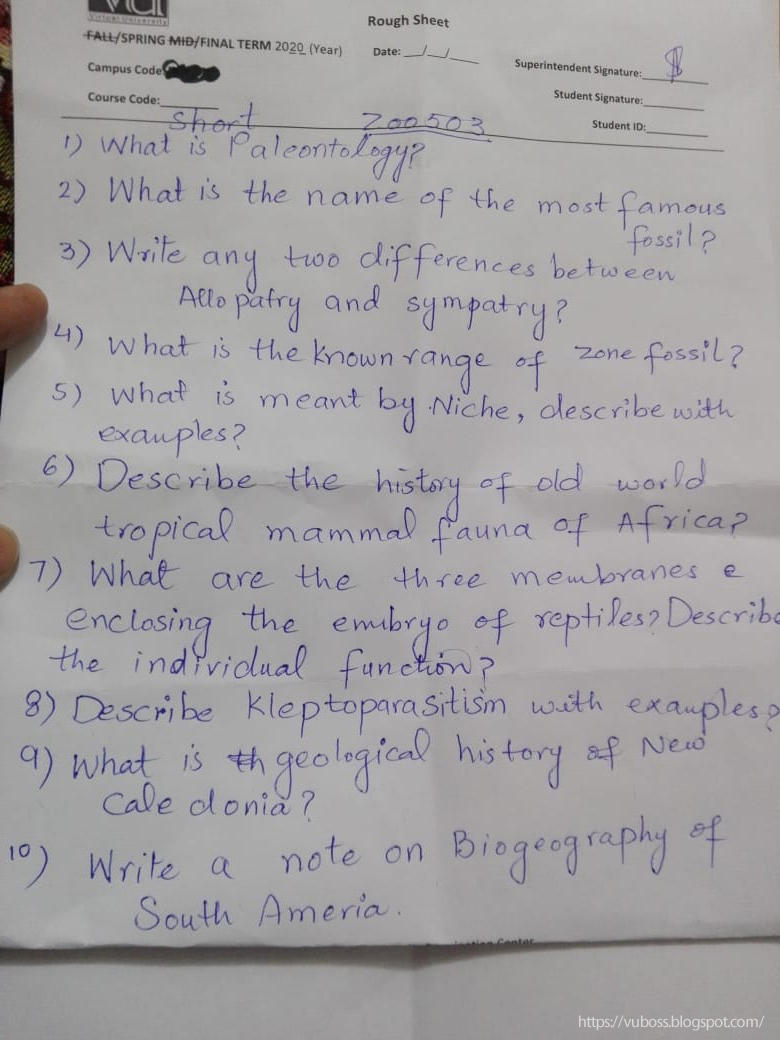 Virtual University
Rough Sheet
FALL/SPRING MID/FINAL TERM 2020 (Year)
Date: __/__/___
Superintendent Signature:
Campus Code
Student Signature:
Course Code:
Student ID:
Short ZOO503
1) What is Paleontology?
2) What is the name of the most famous
fossil?
3) Write any two differences between
Allopatry and sympatry?
4) What is the known range of zone fossil?
5) What is meant by Niche, describe with
examples?
6) Describe the history of old world
tropical mammal fauna of Africa?
7) What are the three membranes e
enclosing the embryo of reptiles? Describe
the individual function?
8) Describe Kleptoparasitism with examples?
9) What is th geological history of New
Caledonia?
10) Write a note on Biogeography of
South Ameria.
Center
https://vuboss.blogspot.com/